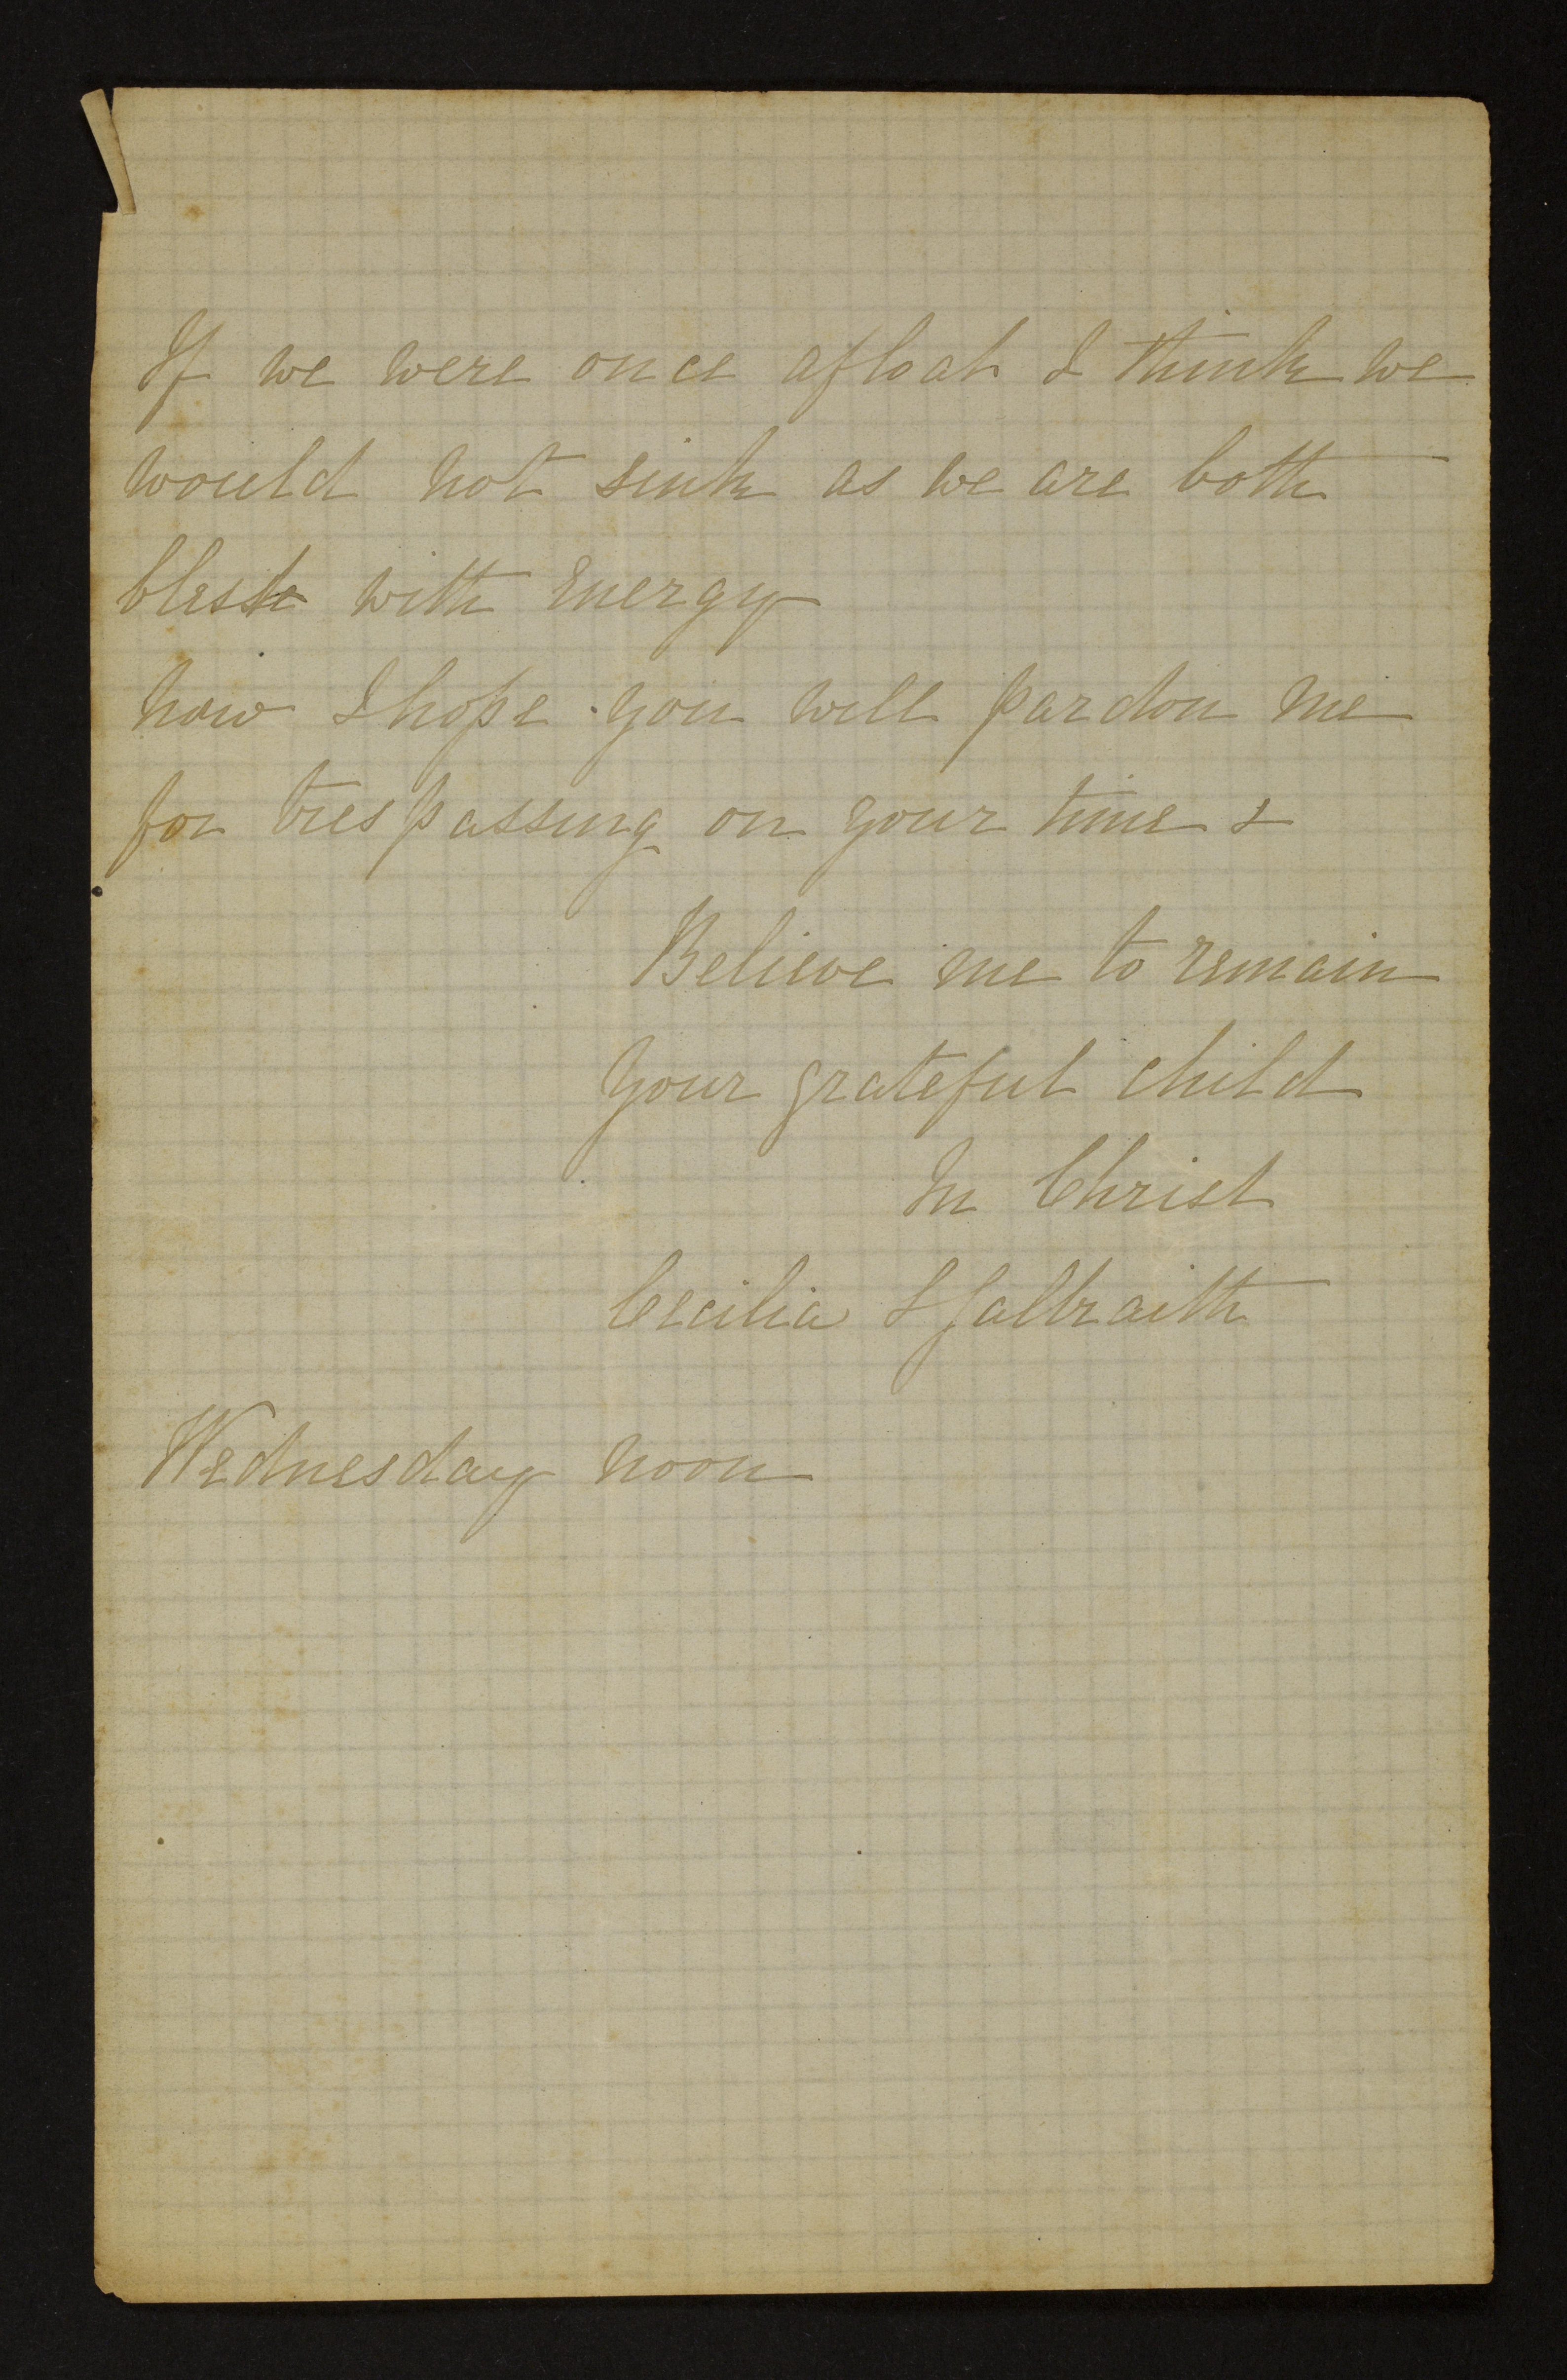 If we were once afloat I think we
would not sink as we are both
blest with energy
now I hope you will pardon me
for trespassing on your time &
Believe me to remain
your grateful child
In Christ
Cecilia J Galbraith
Wednesday noon